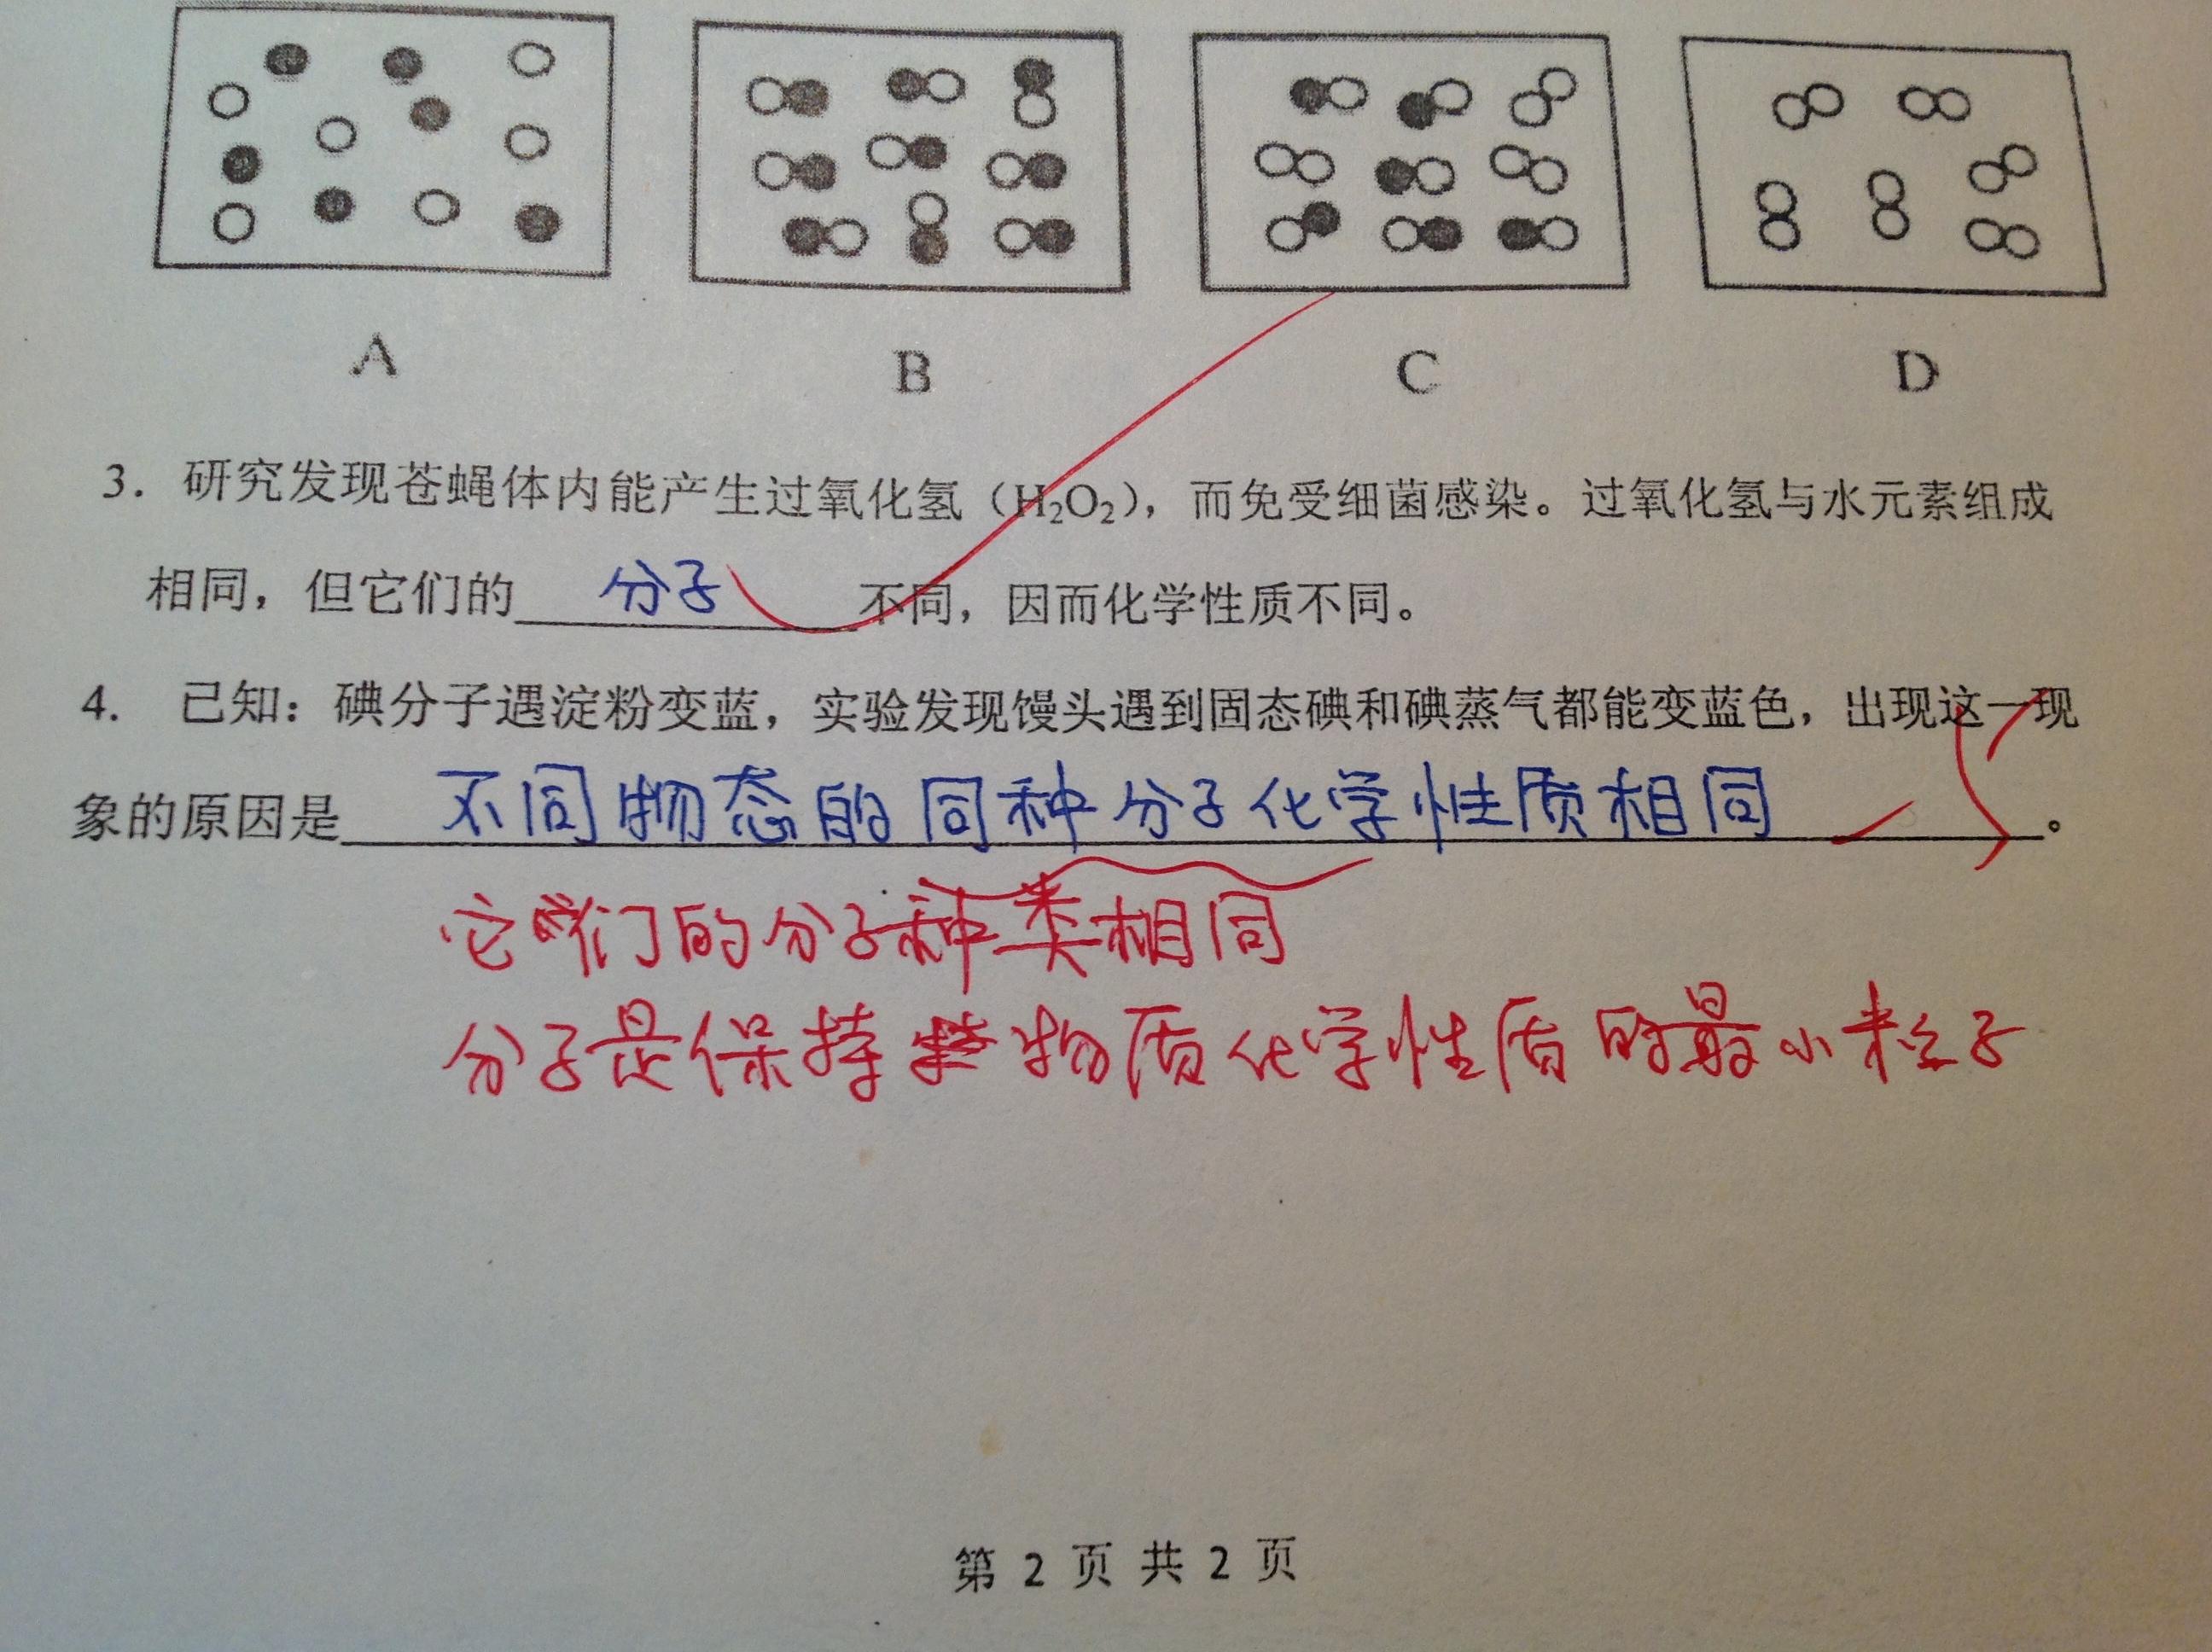 A B C D
3. 研究发现苍蝇体内能产生过氧化氢（H₂O₂），而免受细菌感染。过氧化氢与水元素组成
相同，但它们的 分子 不同，因而化学性质不同。
4. 已知：碘分子遇淀粉变蓝，实验发现馒头遇到固态碘和碘蒸气都能变蓝色，出现这一现
象的原因是 不同物态的同种分子化学性质相同 。
它们的分子种类相同
分子是保持物质化学性质的最小粒子
第 2 页 共 2 页